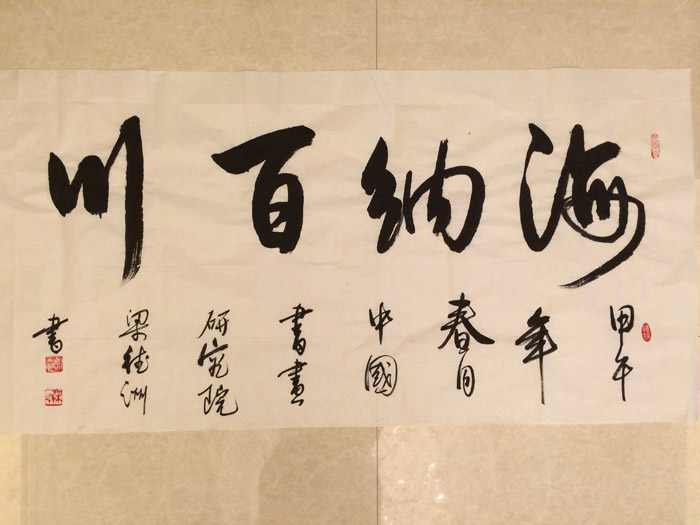 海纳百川
甲午年春月中國書畫研究院梁德洲書